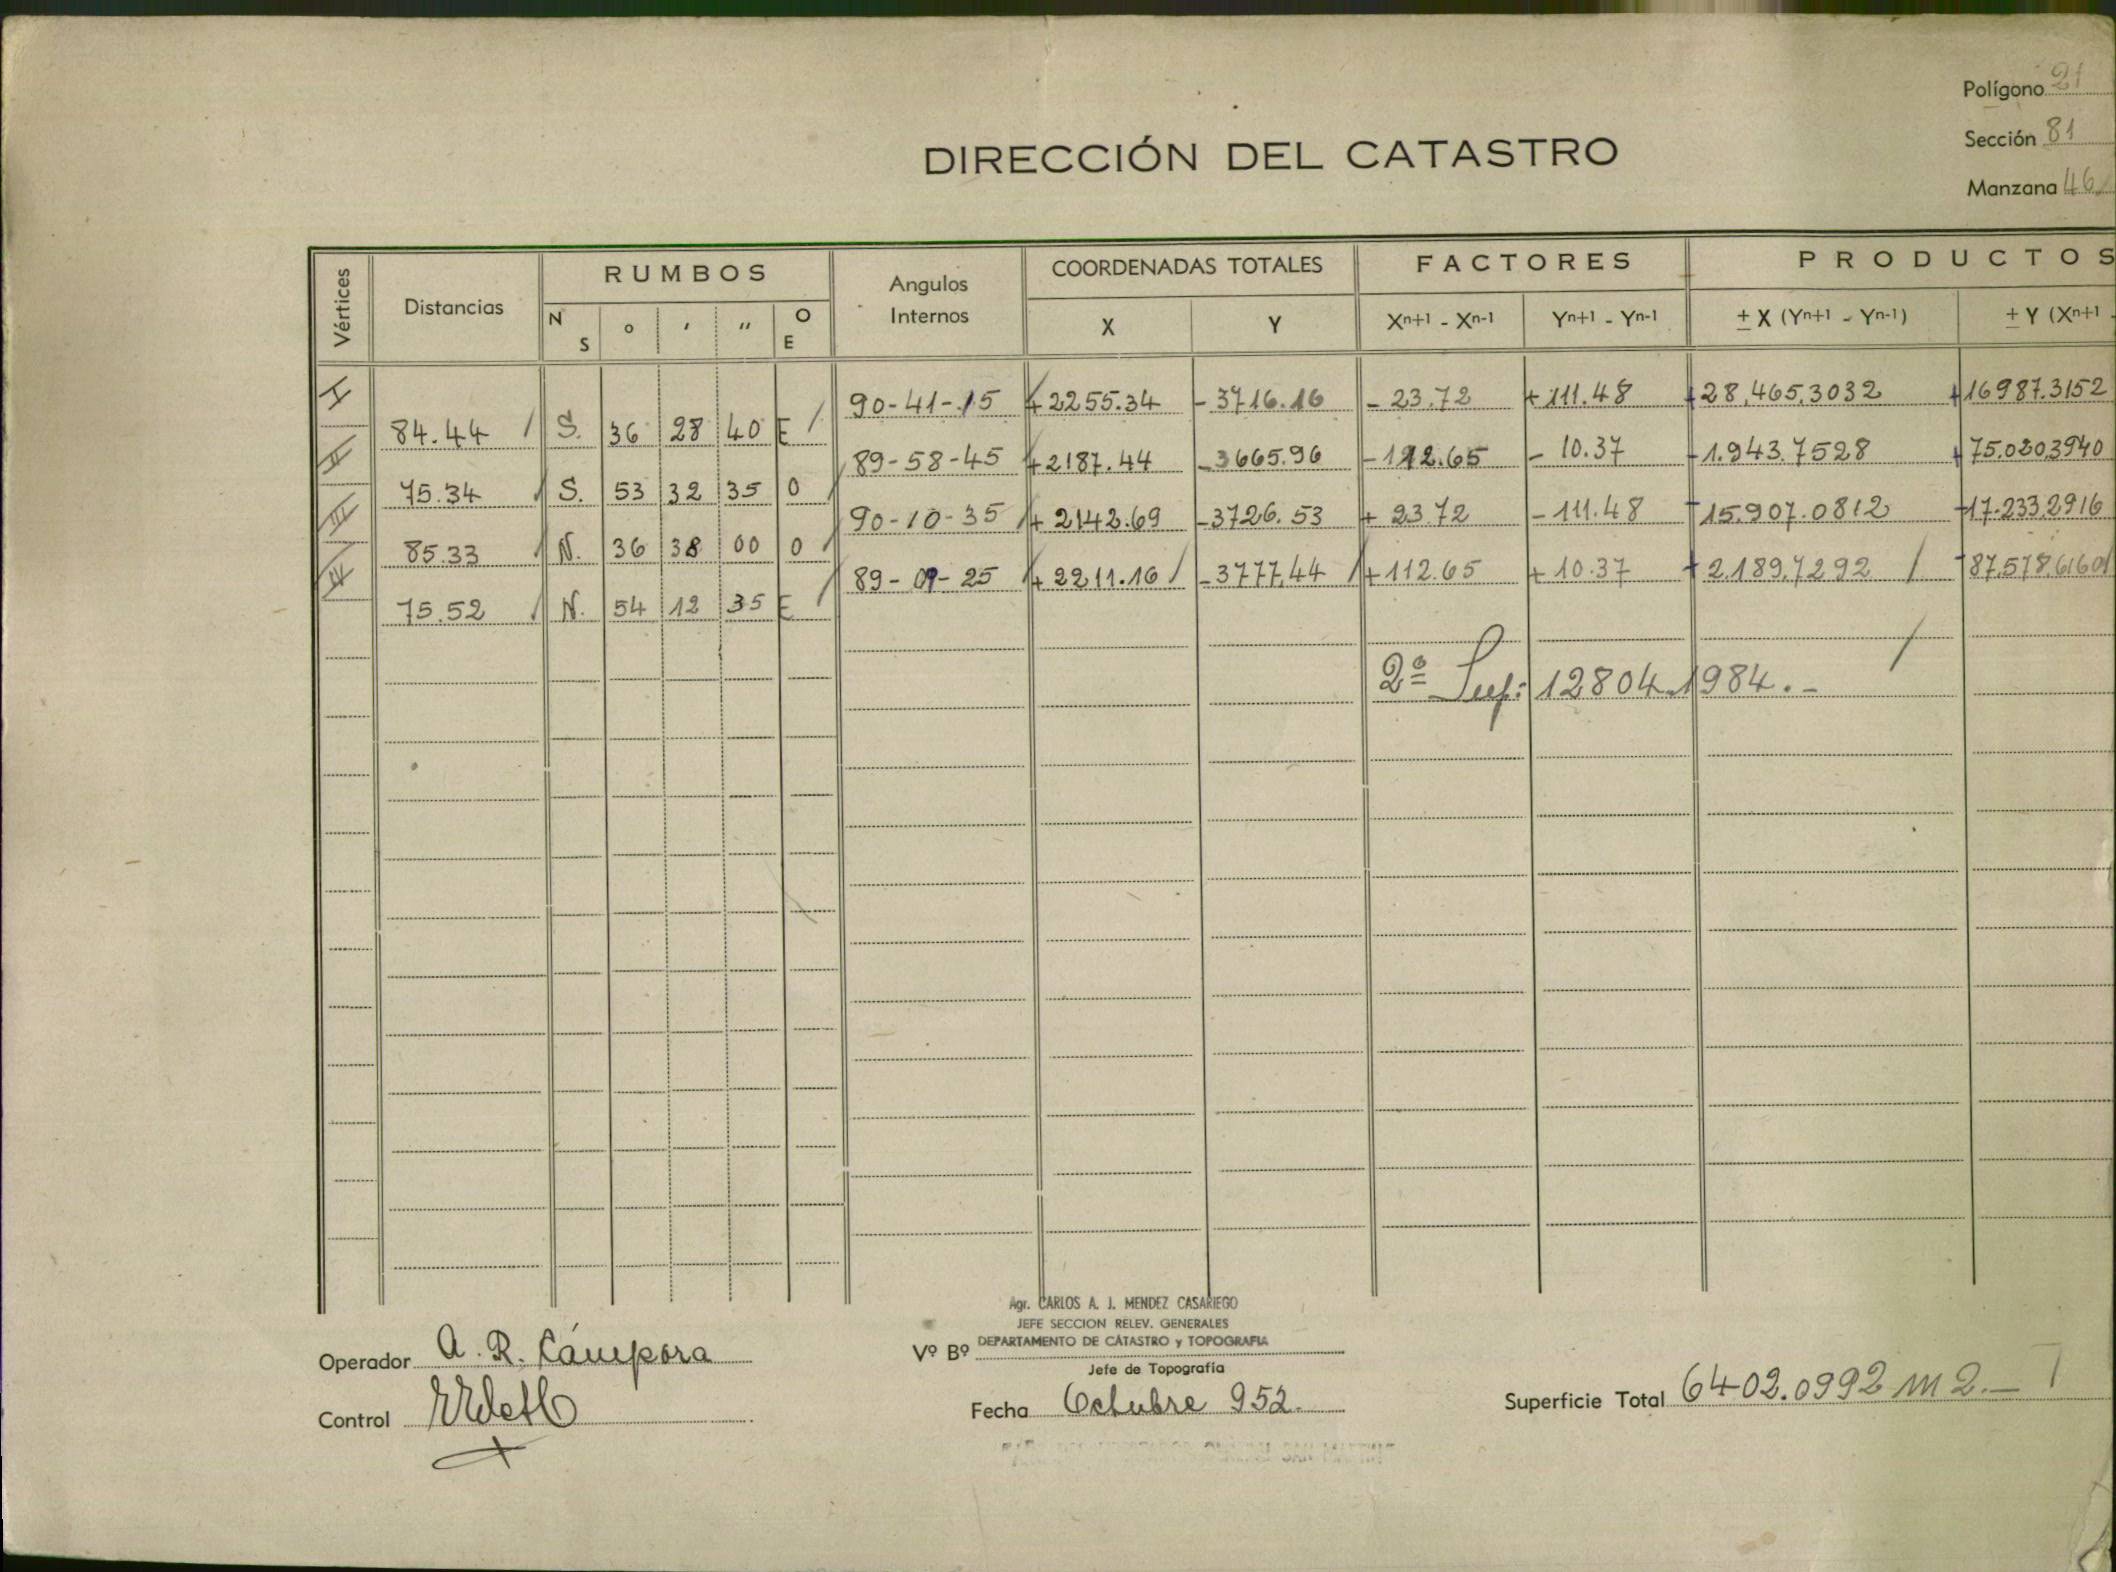 Polígono 21
Sección 81
Manzana 46
DIRECCIÓN DEL CATASTRO
Vértices Distancias RUMBOS N S ° ' " O E Angulos Internos COORDENADAS TOTALES X Y FACTORES Xn+1 - Xn-1 Yn+1 - Yn-1 PRODUCTOS ± X (Yn+1 - Yn-1) ± Y (Xn+1 -
I 90-41-15 +2255.34 -3716.16 -23.72 +111.48 +28.465.3032 +16987.3152
84.44 S. 36 28 40 E
II 89-58-45 +2187.44 -3665.96 -112.65 -10.37 -1.943.7528 +75.020.3940
75.34 S. 53 32 35 O
III 90-10-35 +2142.69 -3726.53 +23.72 -111.48 -15.907.0812 -17.233.2916
85.33 N. 36 38 00 O
IV 89-09-25 +2211.16 -3777.44 +112.65 +10.37 +2.189.7292 -87.578.6160
75.52 N. 54 12 35 E
2ª Sup: 12804.1984.-
Agr. CARLOS A. J. MENDEZ CASARIEGO
JEFE SECCION RELEV. GENERALES
DEPARTAMENTO DE CATASTRO y TOPOGRAFIA
Operador A. R. Cámpora
Vº Bº
Jefe de Topografía
Control
Fecha Octubre 952.
Superficie Total 6402.0992 m2.—